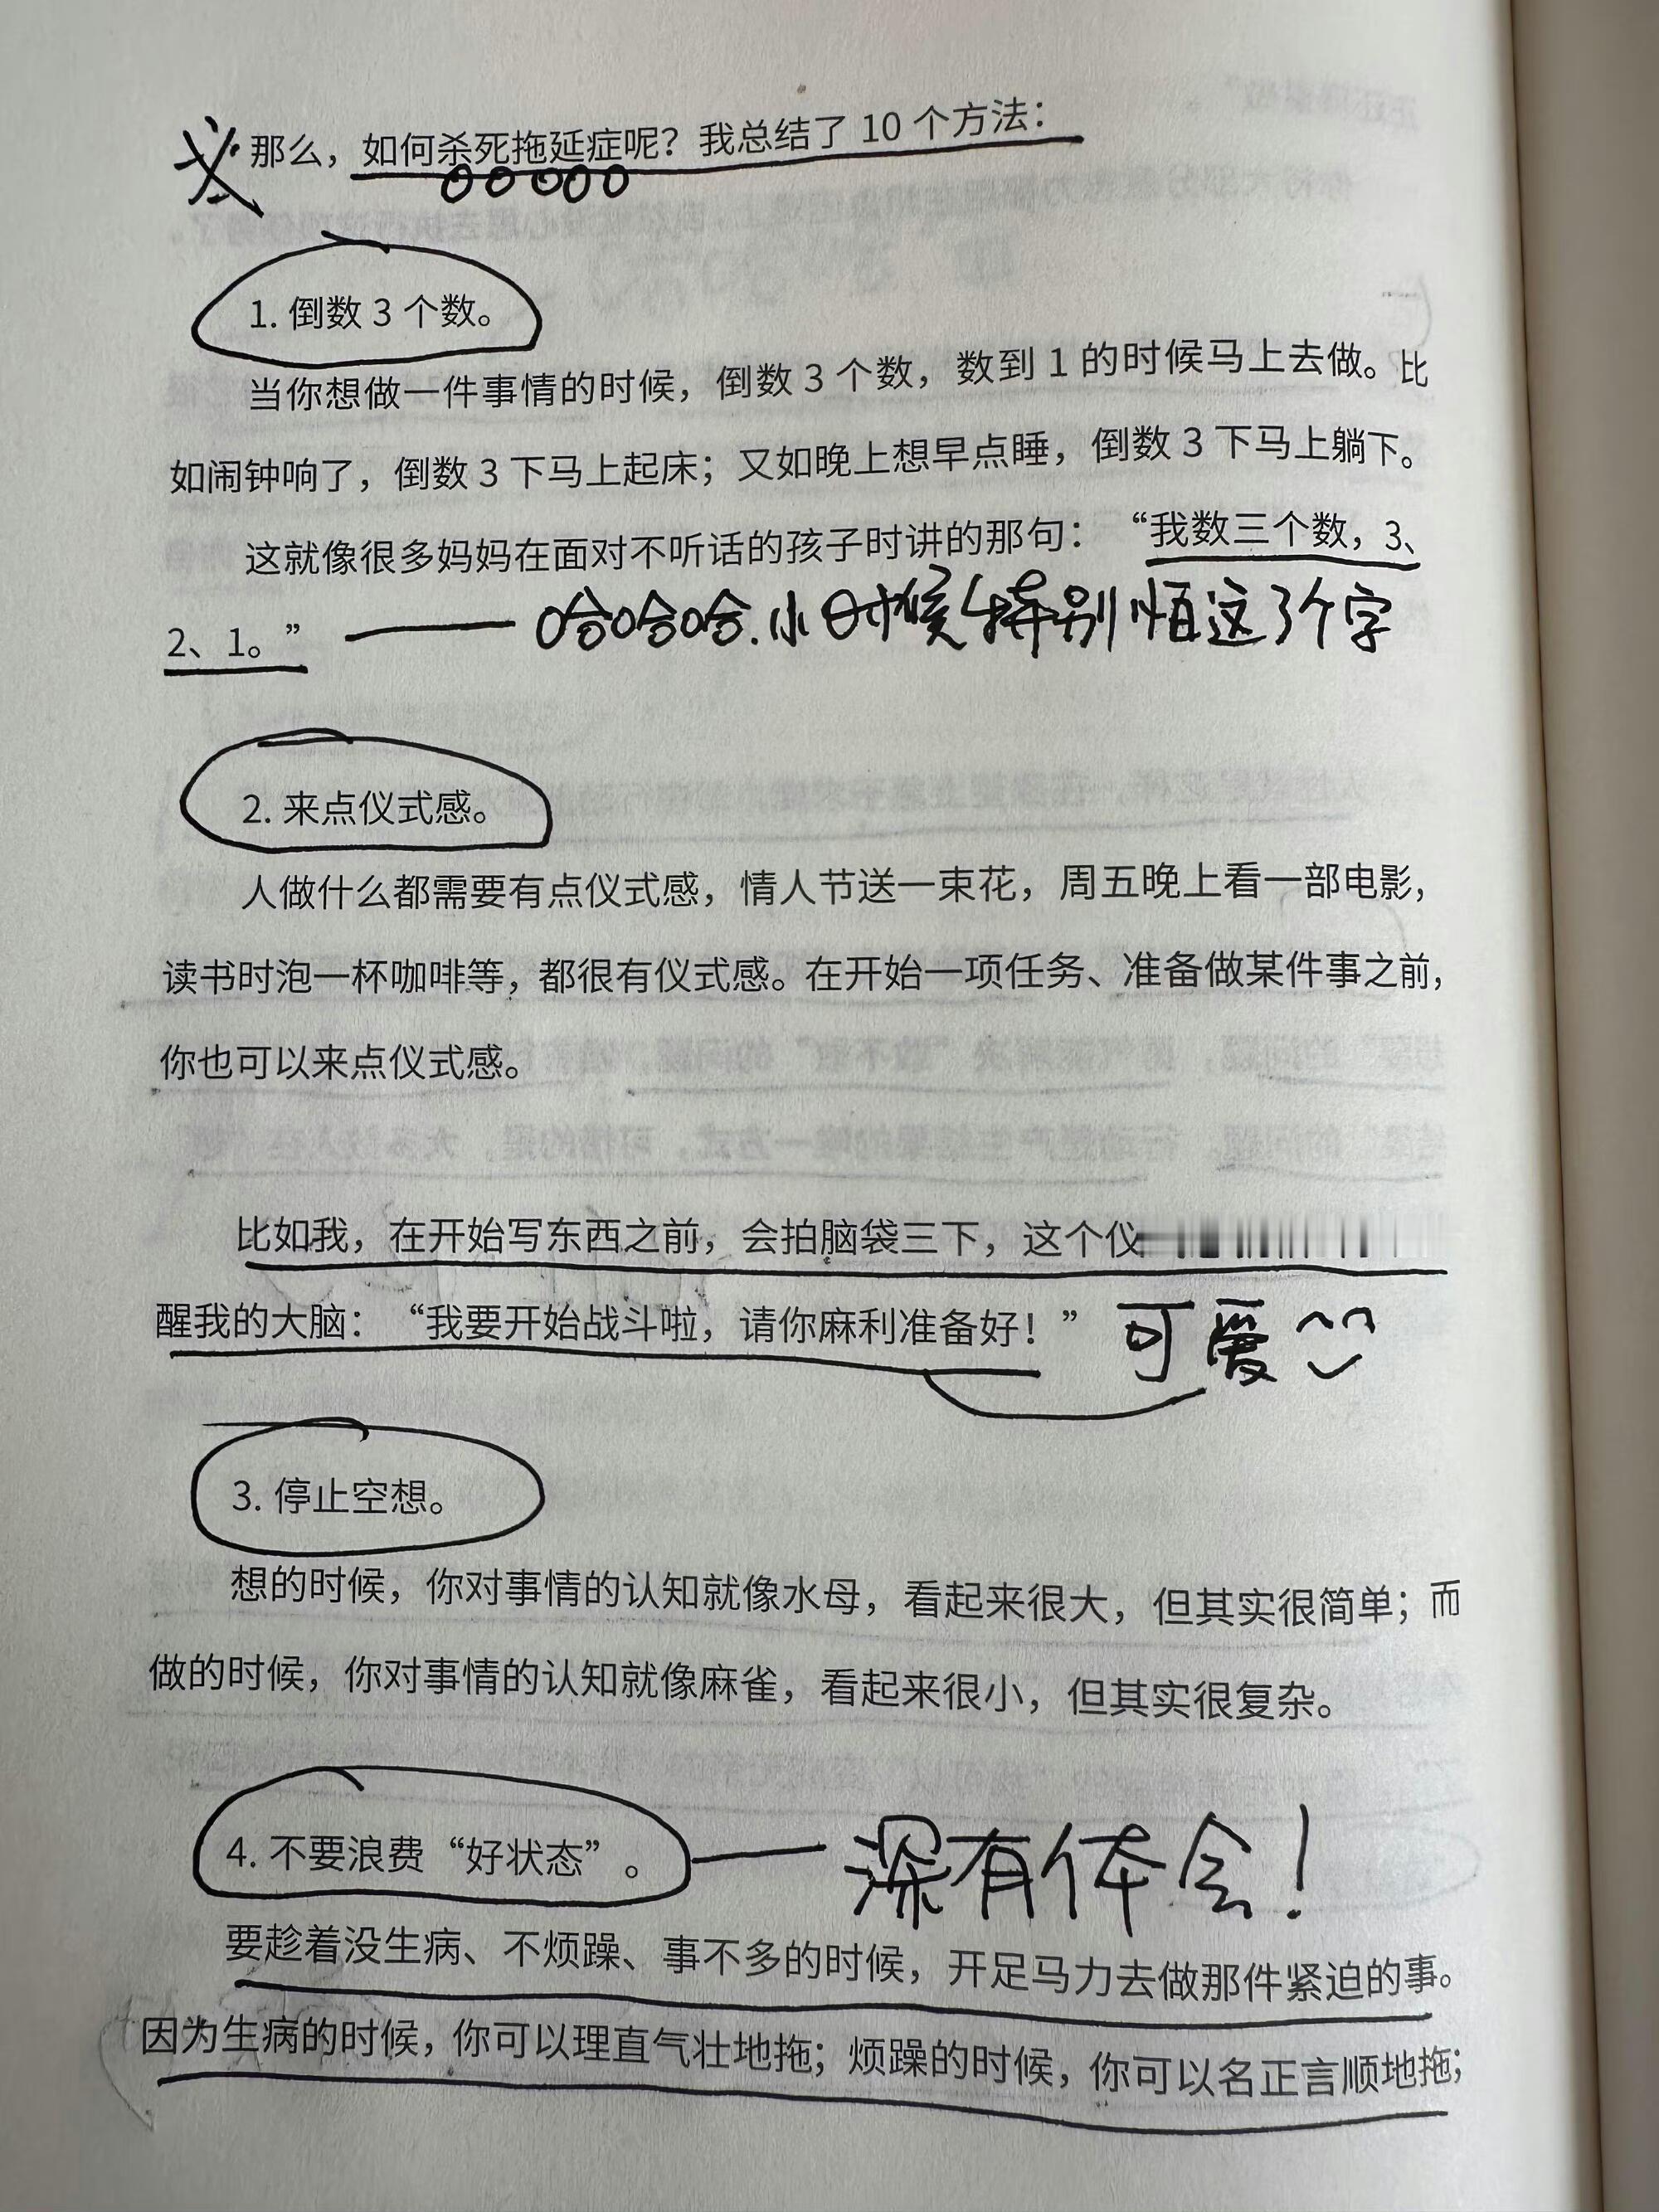 那么，如何杀死拖延症呢？我总结了 10 个方法：
1. 倒数 3 个数。
当你想做一件事情的时候，倒数 3 个数，数到 1 的时候马上去做。比
如闹钟响了，倒数 3 下马上起床；又如晚上想早点睡，倒数 3 下马上躺下。
这就像很多妈妈在面对不听话的孩子时讲的那句：“我数三个数，3、
2、1。” —— 哈哈哈.小时候特别怕这3个字
2. 来点仪式感。
人做什么都需要有点仪式感，情人节送一束花，周五晚上看一部电影，
读书时泡一杯咖啡等，都很有仪式感。在开始一项任务、准备做某件事之前，
你也可以来点仪式感。
比如我，在开始写东西之前，会拍脑袋三下，这个仪
醒我的大脑：“我要开始战斗啦，请你麻利准备好！” 可爱
3. 停止空想。
想的时候，你对事情的认知就像水母，看起来很大，但其实很简单；而
做的时候，你对事情的认知就像麻雀，看起来很小，但其实很复杂。
4. 不要浪费“好状态”。 —— 深有体会！
要趁着没生病、不烦躁、事不多的时候，开足马力去做那件紧迫的事。
因为生病的时候，你可以理直气壮地拖；烦躁的时候，你可以名正言顺地拖；